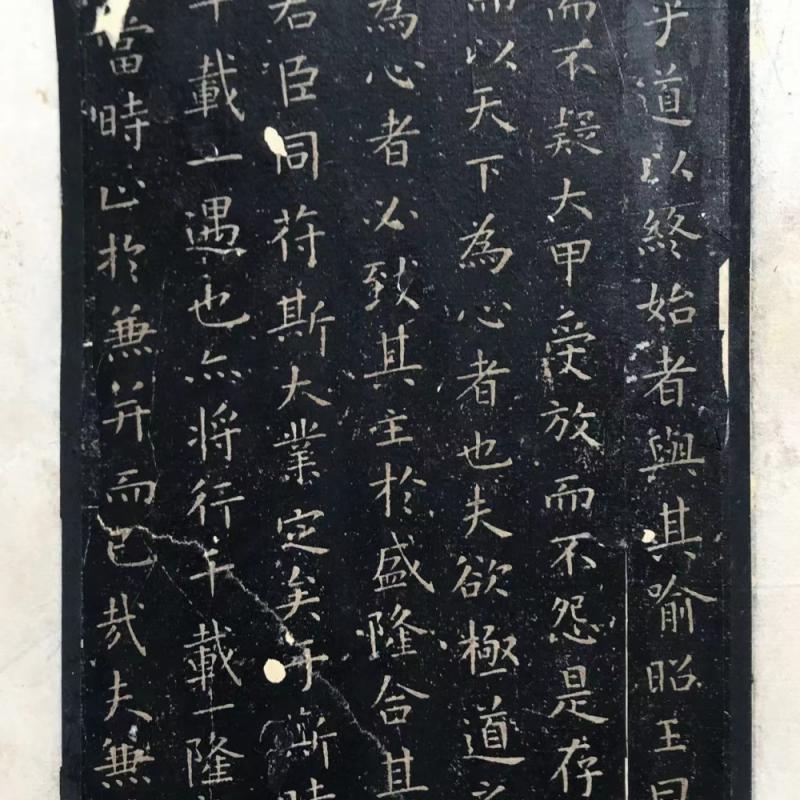 乎道以終始者與其喻昭王曰
而不疑大甲受放而不怨是存
而以天下為心者也夫欲極道之
為心者必致其主於盛隆合其
君臣同苻斯大業定矣于斯時
千載一遇也亦将行千載一隆
當時止於兼并而已哉夫兼